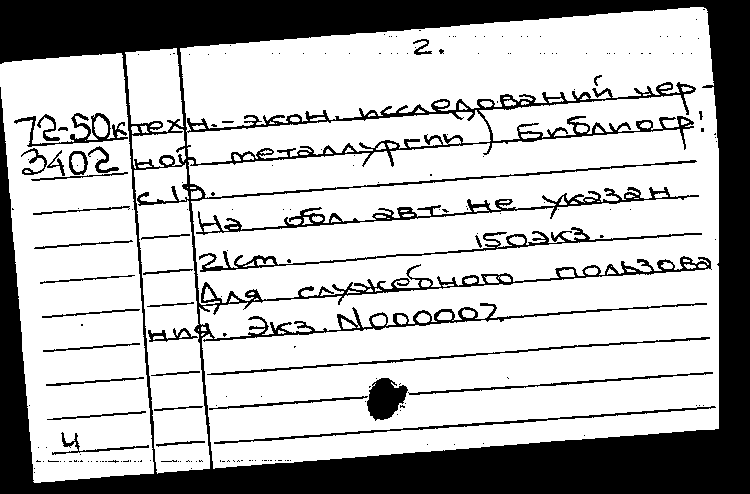 2.
72-50к техн.-экон. исследований чер-
3402 ной металлургии). Библиогр:
с.19.
На обл. авт. не указан.
21см. 150экз.
Для служебного пользова
ния. Экз. N000007.
4